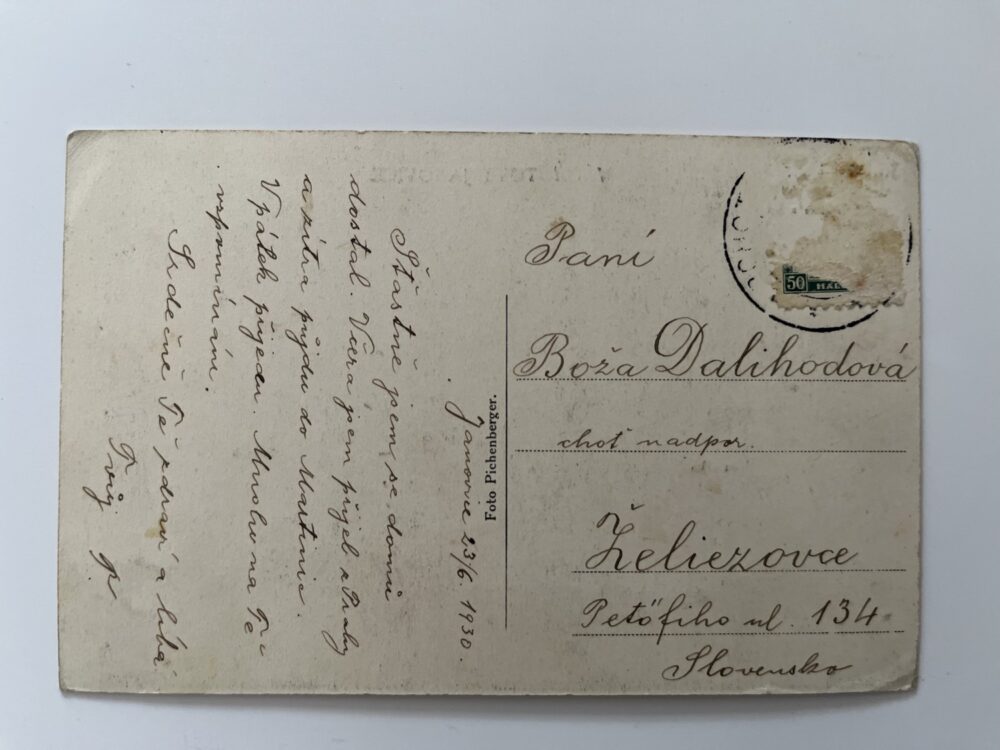 Janovice 23/6. 1930.
Šťastně jsem se domů
dostal. Včera jsem přijel z Prahy
a zítra půjdu do Martinic.
V pátek přijedu. Mnoho na Tě
vzpomínám.
Srdečně Tě zdraví a líbá
Tvůj P
Foto Pichenberger.
50
Paní
Boža Dalihodová
choť nadpor.
Želiezovce
Petőfiho ul. 134
Slovensko